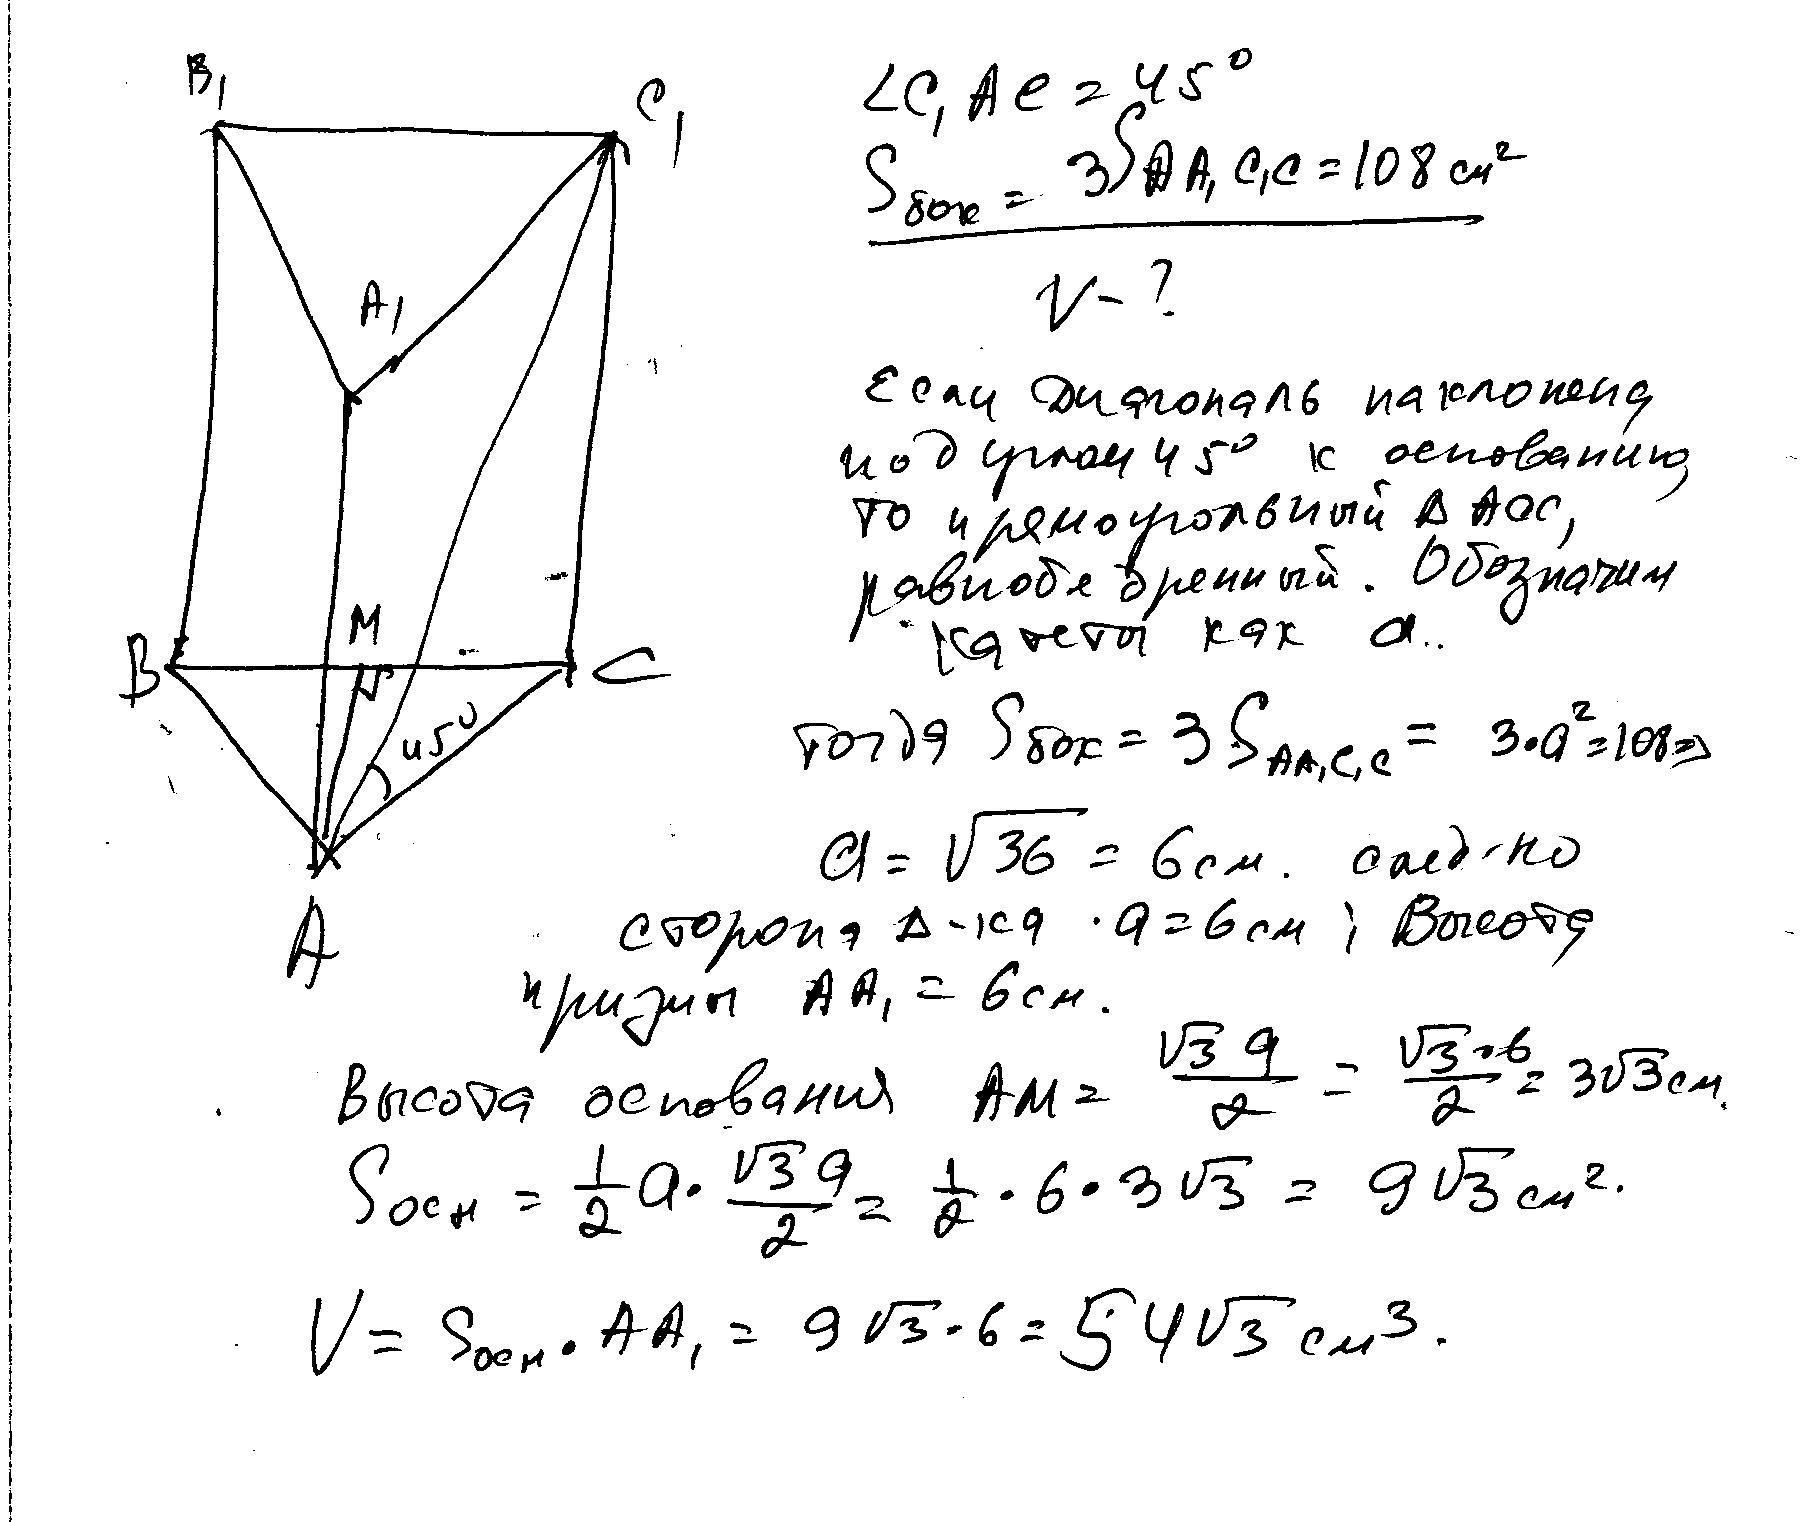 B₁
C₁
A₁
M
B
C
45°
A
∠C₁AC = 45°
Sбок = 3SAA₁C₁C = 108 см²
V - ?
Если Диагональ наклонена
под углом 45° к основанию,
то прямоугольный Δ ACC₁
равнобедренный. Обозначим
катеты как a..
тогда Sбок = 3 SAA₁C₁C = 3·a² = 108 =>
a = √36 = 6 см. след-но
сторона Δ-ка · a = 6 см ; Высота
призмы AA₁ = 6 см.
Высота основания AM = √3 a / 2 = √3·6 / 2 = 3√3 см.
Sосн = 1/2 a · √3 a / 2 = 1/2 · 6 · 3√3 = 9√3 см².
V = Sосн · AA₁ = 9√3 · 6 = 54√3 см³.